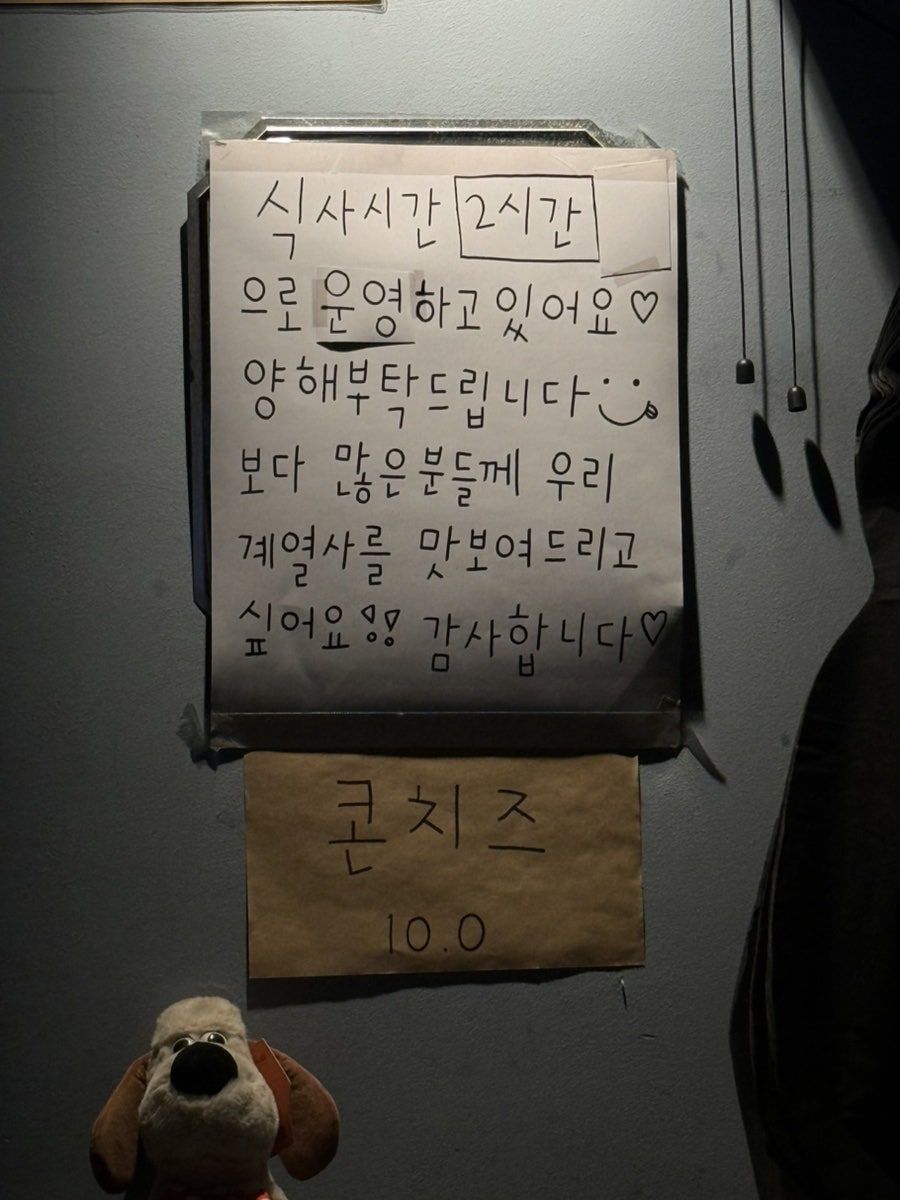 식사시간 2시간
으로 운영하고 있어요♡
양해부탁드립니다
보다 많은분들께 우리
계열사를 맛보여드리고
싶어요!! 감사합니다♡
콘치즈
10.0